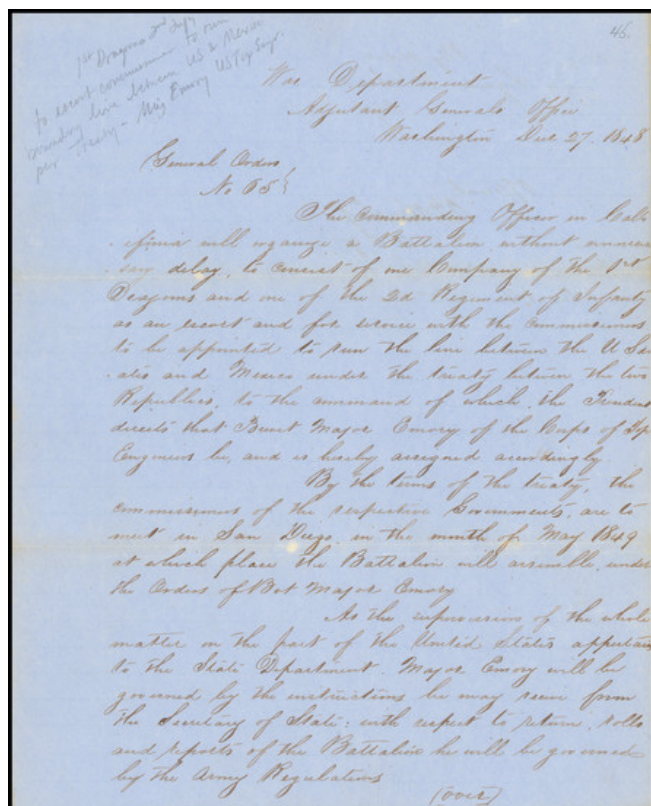 45.
1st Dragoons 2nd Infy
to escort commissioner to run
boundary line between US & Mexico
per treaty - Maj Emory US Top Engr.
War Department
Adjutant Generals Office
Washington Dec 27. 1848
General Orders
No 65
The commanding Officer in Cali
ifornia will organize a Battalion without unneces
sary delay, to consist of one Company of the 1st
Dragoons and one of the 2d Regiment of Infantry
as an escort and for service with the commissioners
to be appointed to run the line between the U Sta
ates and Mexico under the treaty between the two
Republics, to the command of which, the President
directs that Brevet Major Emory of the Corps of Top
Engineers be, and is hereby assigned accordingly
By the terms of the treaty, the
commissioners of the respective Governments, are to
meet in San Diego in the month of May 1849
at which place the Battalion will assemble under
the Orders of Bvt Major Emory
As the supervision of the whole
matter on the part of the United States appertains
to the State Department. Major Emory will be
governed by the instructions he may receive from
the Secretary of State: with respect to return, rolls
and reports of the Battalion he will be governed
by the Army Regulations
(over)